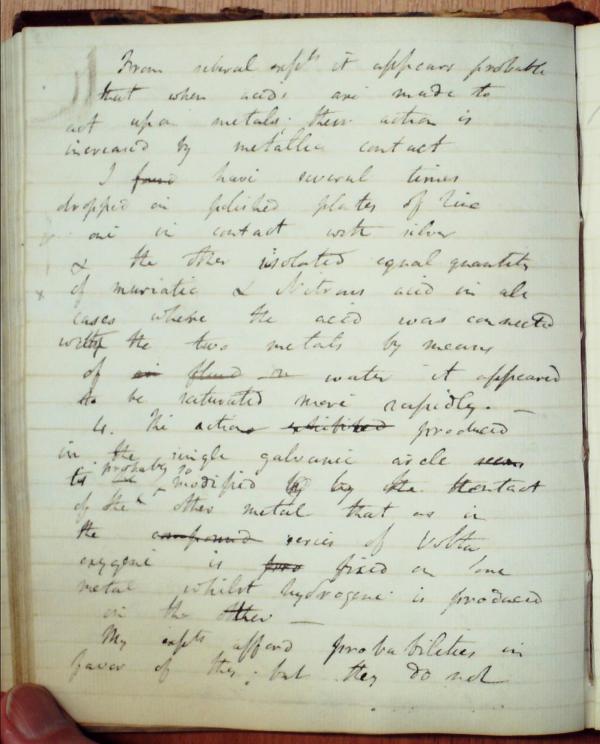 From several expts it appears probable
that when acids are made to
act upon metals; their action is
increased by metallic contact
I found have several times
dropped on polished plates of Zinc
one in contact with silver
& the other isolated equal quantity
of muriatic & Nitrous acid in all
cases where the acid was connected
with the two metals by means
of fluid or water it appeared
to be saturated more rapidly. —
4. The action exhibited produced
in the single galvanic circle seems
is probably so modified by the contact
of the other metal that as in
the compound series of Volta
oxygene is fixed on one
metal whilst hydrogene is produced
on the other —
My expts afford probabilities in
favor of this; but they do not